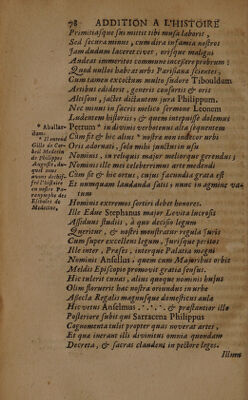 78 ADDITION A L'HISTOIRE
Primitiasque sui mittit tibi musa laboris,
Sed secura minus, cum dira infamia nostros
Iam dudum laceret cives, vorsque maligni
Audeat immeritos commune incessere probrum:
Quod nullos habeat urbs Parisiana scientes,
Cum tamen excoctum multo sudore Tibouldum
Artibus ediderit, generis consortis & oris
Altisoni, falset dictantem jura Philippum.
Nec minus in sacris mellito sermone Leonem
Ludentem historiis, & quem intepuisse dolemus
Petrum * in divinis verbotenus alta sequentem
Cum sit & hic alius * nostra non indecor urbi
Oris adornati, solo mihi junctus in usu
Nominis, in reliquis major meliorque ferendus;
Nominis ille mei celeberrimus arte medendi
Cum sit & hic ortus, cujus facundia grata est
Et numquam laudanda satis; nunc in agmina vatum
Hominis extremos sortiri debet honores.
Ille Edue Stephanus major Levita lucrosis
Assiduus studiis, à quo decisio legum
Quæritur, & nostri monstratur regula juris
Cum super excellens legum, Jurisque peritos
Ille inter, Præses, interque Palatia magni
Nominis Ansellus, quem cum Majoribus orbis
Meldis Episcopio promovit gratia sensus.
Hic tulerit cunas, alius quoque nominis hujus
Olim floruerit hac nostra oriundus in urbe
Assecla Regalis magnusque domesticus aula
Hic ortus Anselmus . · . · . & præstantior illo
Posteriore subit qui Sarracena Philippus
Cognomenta tulit propter quas noverat artes,
Et qua inerant illi divinitus omnia quondam
Decreta, & sacras claudent in pectore leges.
Illum
* Aballardum.
* Il entend Gille de Corbeil Medecin de Philippe Auguste, duquel nous avons déchiffré l'histoire en nostre Paranymphe des Escholes de Medecine.